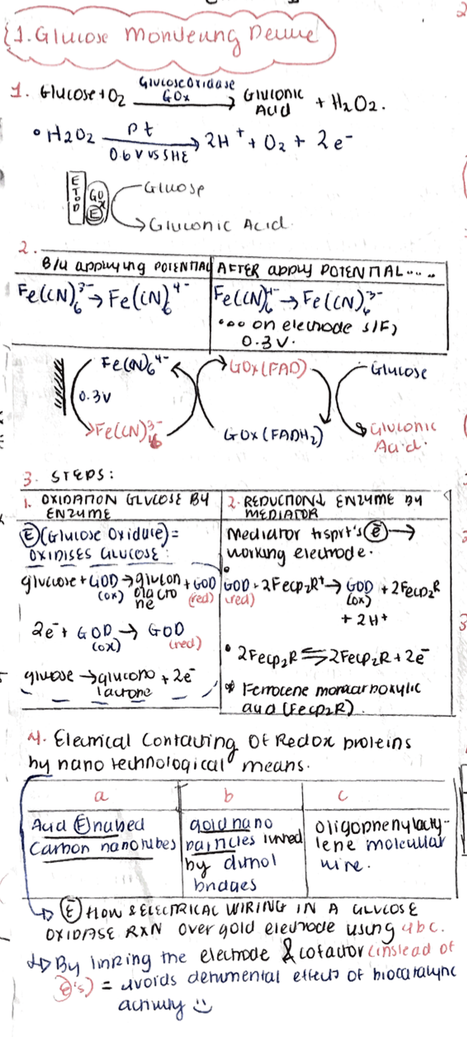 1. Glucose Monitering Device
1. Glucose + O2 Glucose Oxidase GOx → Gluconic Acid + H2O2.
• H2O2 Pt 0.6 V VS SHE → 2H+ + O2 + 2e-
ETOD GOx E Glucose
→ Gluconic Acid.
2.
B/U applying POTENTIAL AFTER apply POTENTIAL.....
Fe(CN)6 3- → Fe(CN)6 4- Fe(CN)6 4- → Fe(CN)6 3-
... on electrode S/F,
0.3V.
Fe(CN)6 4- GOx(FAD) Glucose
0.3V
Fe(CN)6 3- GOx(FADH2) Gluconic
Acid.
3. STEPS:
1. OXIDATION GLUCOSE BY ENZYME
2. REDUCTION OF ENZYME BY MEDIATOR
E (Glucose Oxidase) =
OXIDISES GLUCOSE:
glucose + GOD (ox) → glucono lactone + GOD (red)
2e- + GOD (ox) → GOD (red)
glucose → glucono lactone + 2e-
Mediator tsprt's e →
working electrode.
GOD (red) + 2Fecp2R+ → GOD (ox) + 2Fecp2R
+ 2H+
• 2Fecp2R ⇌ 2Fecp2R + 2e-
* Ferrocene monocarboxylic
acid (Fecp2R).
4. Electrical Contacting Of Redox proteins
by nano technological means.
a b c
Carbon nanotubes
gold nano
particles
by dithiol
bridges
Oligophenylacty-
lene molecular
wire.
→ E FLOW & ELECTRICAL WIRING IN A GLUCOSE
OXIDASE RXN over gold electrode using abc.
→ By linking the electrode & cofactor (instead of
E's) = avoids detrimental effects of biocatalytic
activity